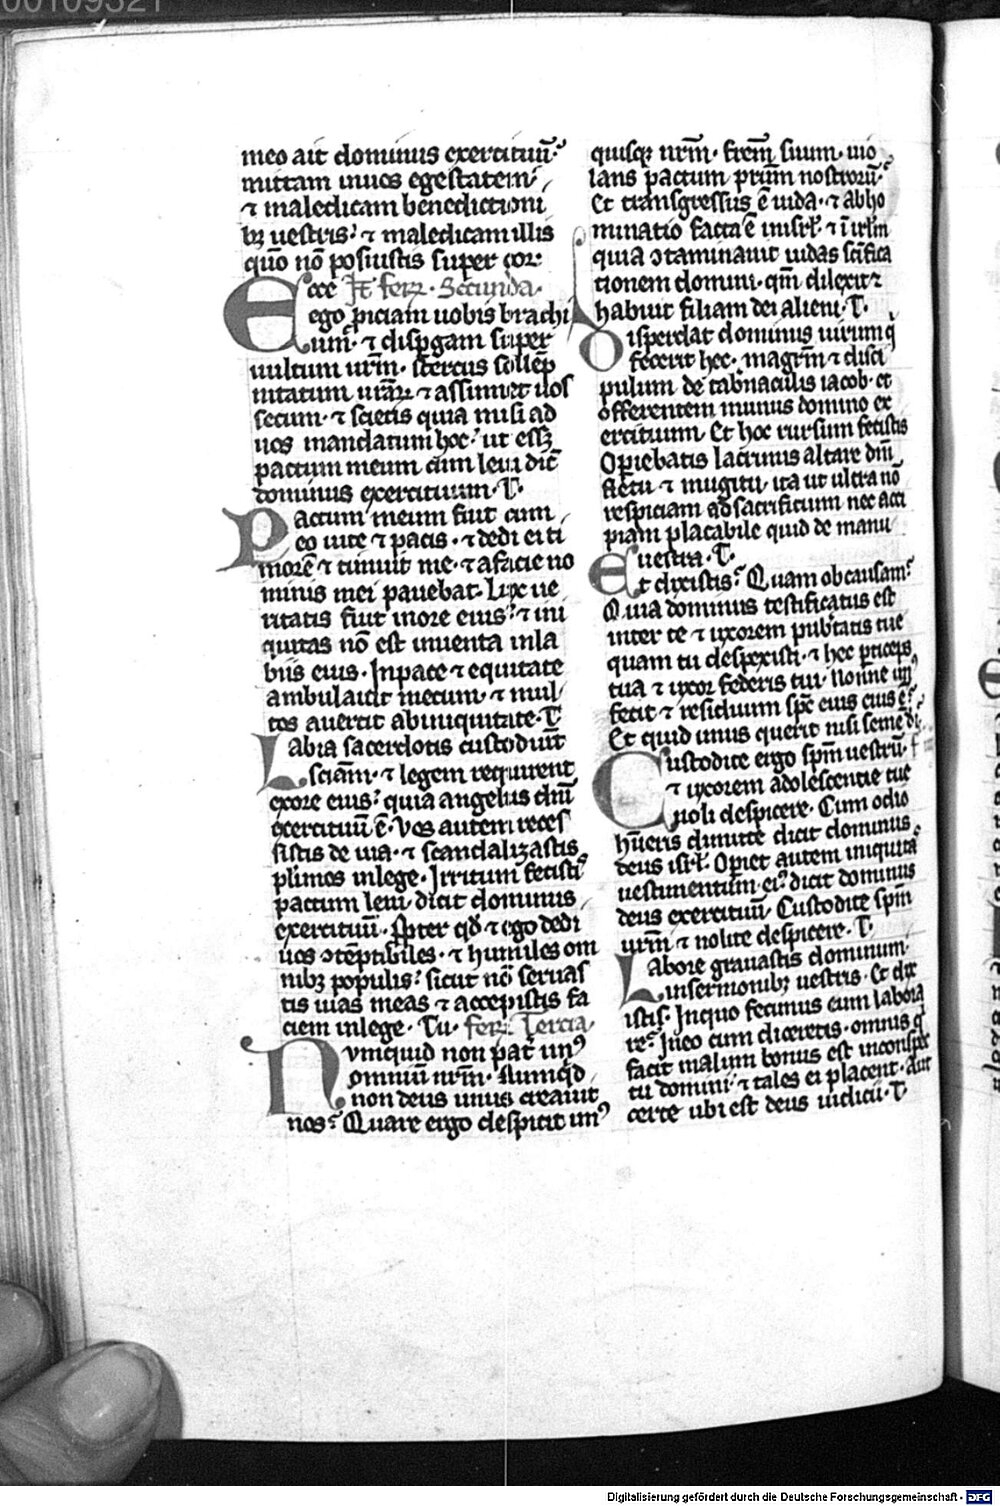 00109321
meo ait dominus exercituū·
mittam inuos egestatem·
⁊ maledicam benedictioni
bꝫ uestris· ⁊ maledicam illis
quo nō posuistis super cor·
Ecce It̄ feria· Secunda·
ego ꝓiciam uobis brachi
um· ⁊ disꝑgam super
uultum urm̄· stercus sollēp
nitatum urāꝝ ⁊ assumet uos
secum· ⁊ scietis quia misi ad
uos mandatum hoc· ut essꝫ
pactum meum cum leui dic̄
dominus exercituum· T·
Pactum meum fuit cum
eo uite ⁊ pacis· ⁊ dedi ei ti
morē ⁊ timuit me· ⁊ afacie no
minis mei pauebat· Lex ue
ritatis fuit inore eius· ⁊ ini
quitas nō est inuenta inla
biis eius· Inpace ⁊ equitate
ambulauit mecum· ⁊ mul
tos auertit abiniquitate· T
Labia sacerdotis custodiūt
sciām· ⁊ legem requirent
exore eius· quia angelus dn̄i
exercituū ē· Vos autem reces
sistis de uia· ⁊ scandalizastis
pl̄imos inlege· Irritum fecistis
pactum leui· dicit dominus
exercituū· Ꝓpter qd̄ ⁊ ego dedi
uos ↄtēptibiles· ⁊ humiles om
nibꝫ populis· sicut nō seruas
tis uias meas ⁊ accepistis fa
ciem inlege· Tu· feria Tercia·
Numquid non pat̄ unꝰ
omniū nrm̄· Numqid
non deus unus creauit
nos· Quare ergo despicit unꝰ
quisqꝫ nrm̄· frem̄ suum· uio
lans pactum prūm nostrorū·
Et transgressus ē iuda· ⁊ abho
minatio facta ē inisrl̄· ⁊ ī irlm̄
quia ↄtaminauit iudas scīfica
tionem domini· qm̄ dilexit ⁊
habuit filiam dei alieni· T·
Disperdat dominus uirum q̇
fecerit hec· magrm̄ ⁊ disci
pulum de tab̄naculis iacob· et
offerentem munus domino ex
ercituum· Et hoc rursum fecistis
Operiebatis lacrimis altare dn̄i
fletu ⁊ mugitu· ita ut ultra nō
respiciam ad sacrificium nec acci
piam placabile quid de manu
uestra· T·
Et dixistis· Quam ob causam·
Quia dominus testificatus est
inter te ⁊ uxorem pub̄tatis tue
quam tu despexisti· ⁊ hec ꝑticeps
tua ⁊ uxor federis tui· Nonne un̄
fecit ⁊ residuum spc̄ eius eius ē·
Et quid unus querit nisi semē di·
Custodite ergo spm̄ uestrū·
⁊ uxorem adolescentie tue
noli despicere· Cum odio
hūeris dimitte dicit dominus
deus isrl̄· Operiet autem iniquitā
uestimentum eiꝰ dicit dominus
deus exercituū· Custodite spm̄
urm̄ ⁊ nolite despicere· T·
Laborē grauastis dominum·
insermonibꝫ uestris· Et dix
istis· Inquo fecimus eum labora
re· Ineo cum diceretis· omnis q̇
facit malum bonus est inconspc̄
tu domini· ⁊ tales ei placent· Aut
certe ubi est deus iudicii· T·
Digitalisierung gefördert durch die Deutsche Forschungsgemeinschaft - DFG